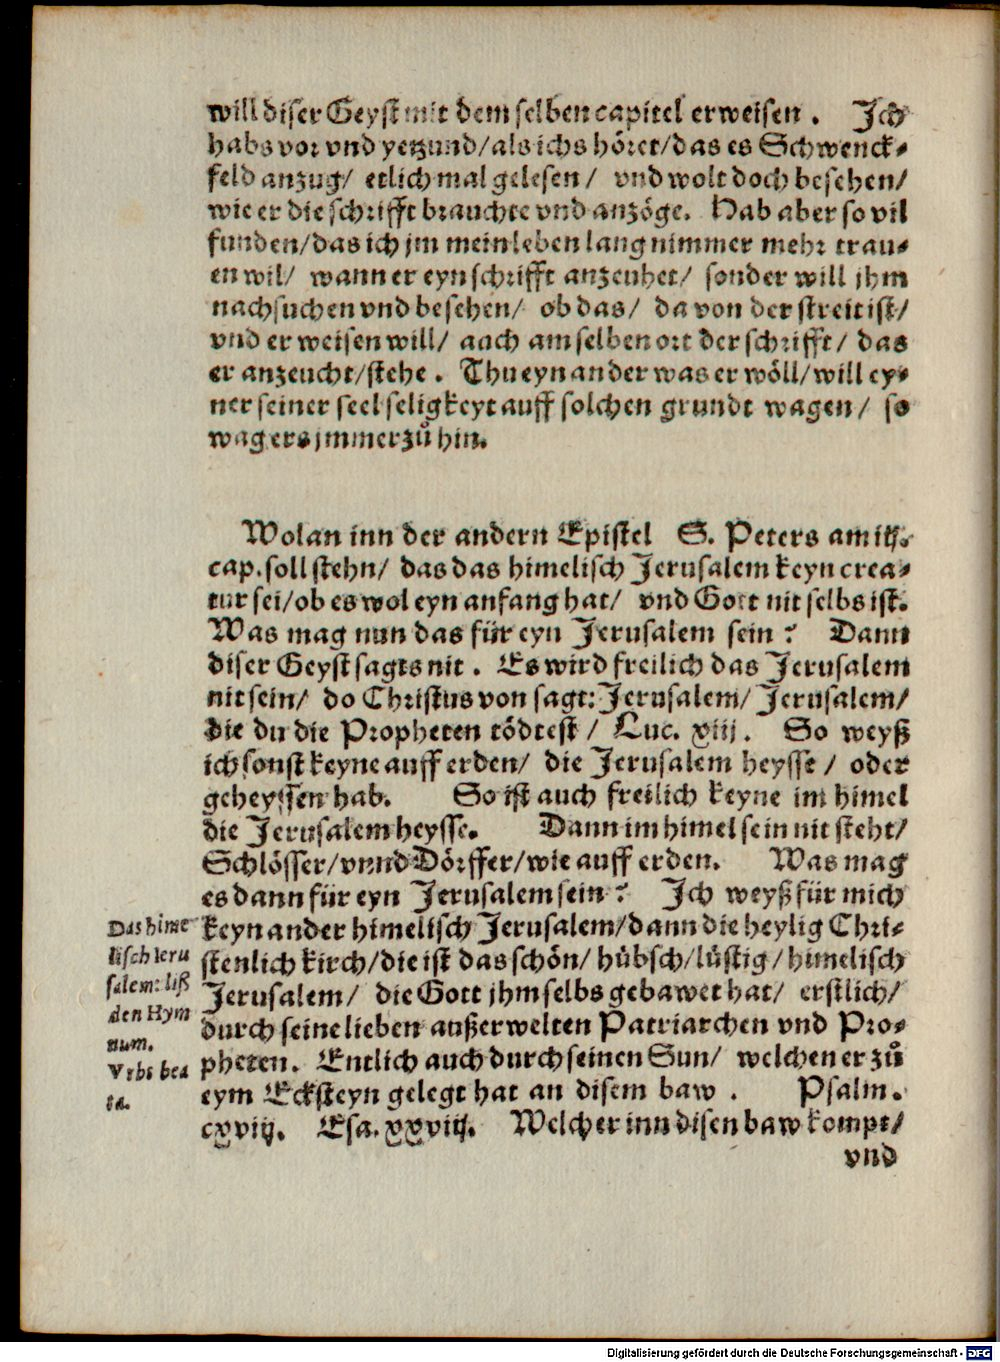 will diser Geyst mit dem selben capitel erweisen. Ich
habs vor vnd yetzund/als ichs höret/das es Schwenck-
feld anzug/ etlich mal gelesen/ vnd wolt doch besehen/
wie er die schrifft brauchte vnd anzöge. Hab aber so vil
funden/das ich jm mein leben lang nimmer mehr trau-
en wil/ wann er eyn schrifft anzeuhet/ sonder will jhm
nachsuchen vnd besehen/ ob das/ da von der streit ist/
vnd er weisen will/ auch am selben ort der schrifft/ das
er anzeucht/stehe. Thu eyn ander was er wöll/will ey-
ner seiner seel seligkeyt auff solchen grundt wagen/ so
wag ers jmmer zuͦ hin.
Wolan inn der andern Epistel S. Peters am iij.
cap. soll stehn/ das das himelisch Jerusalem keyn crea-
tur sei/ob es wol eyn anfang hat/ vnd Gott nit selbs ist.
Was mag nun das für eyn Jerusalem sein? Dann
diser Geyst sagts nit. Es wird freilich das Jerusalem
nit sein/ do Christus von sagt: Jerusalem/ Jerusalem/
die du die Propheten tödtest/ Luc. xiij. So weyß
ich sonst keyne auff erden/ die Jerusalem heysse/ oder
geheyssen hab. So ist auch freilich keyne im himel
die Jerusalem heysse. Dann im himel sein nit steht/
Schlösser/vnnd Dörffer/wie auff erden. Was mag
es dann für eyn Jerusalem sein? Ich weyß für mich
keyn ander himelisch Jerusalem/dann die heylig Chri-
stenlich kirch/die ist das schön/ hübsch/lüstig/himelisch
Jerusalem/ die Gott jhm selbs gebawet hat/ erstlich/
durch seine lieben außerwelten Patriarchen vnd Pro-
pheten. Entlich auch durch seinen Sun/ welchen er zuͦ
eym Ecksteyn gelegt hat an disem baw. Psalm.
cxviij. Esa. xxviij. Welcher inn disen baw kompt/
vnd
Das hime
lisch Ieru
salem: liß
den Hym
num.
Vrbs bea
ta.
Digitalisierung gefördert durch die Deutsche Forschungsgemeinschaft - DFG